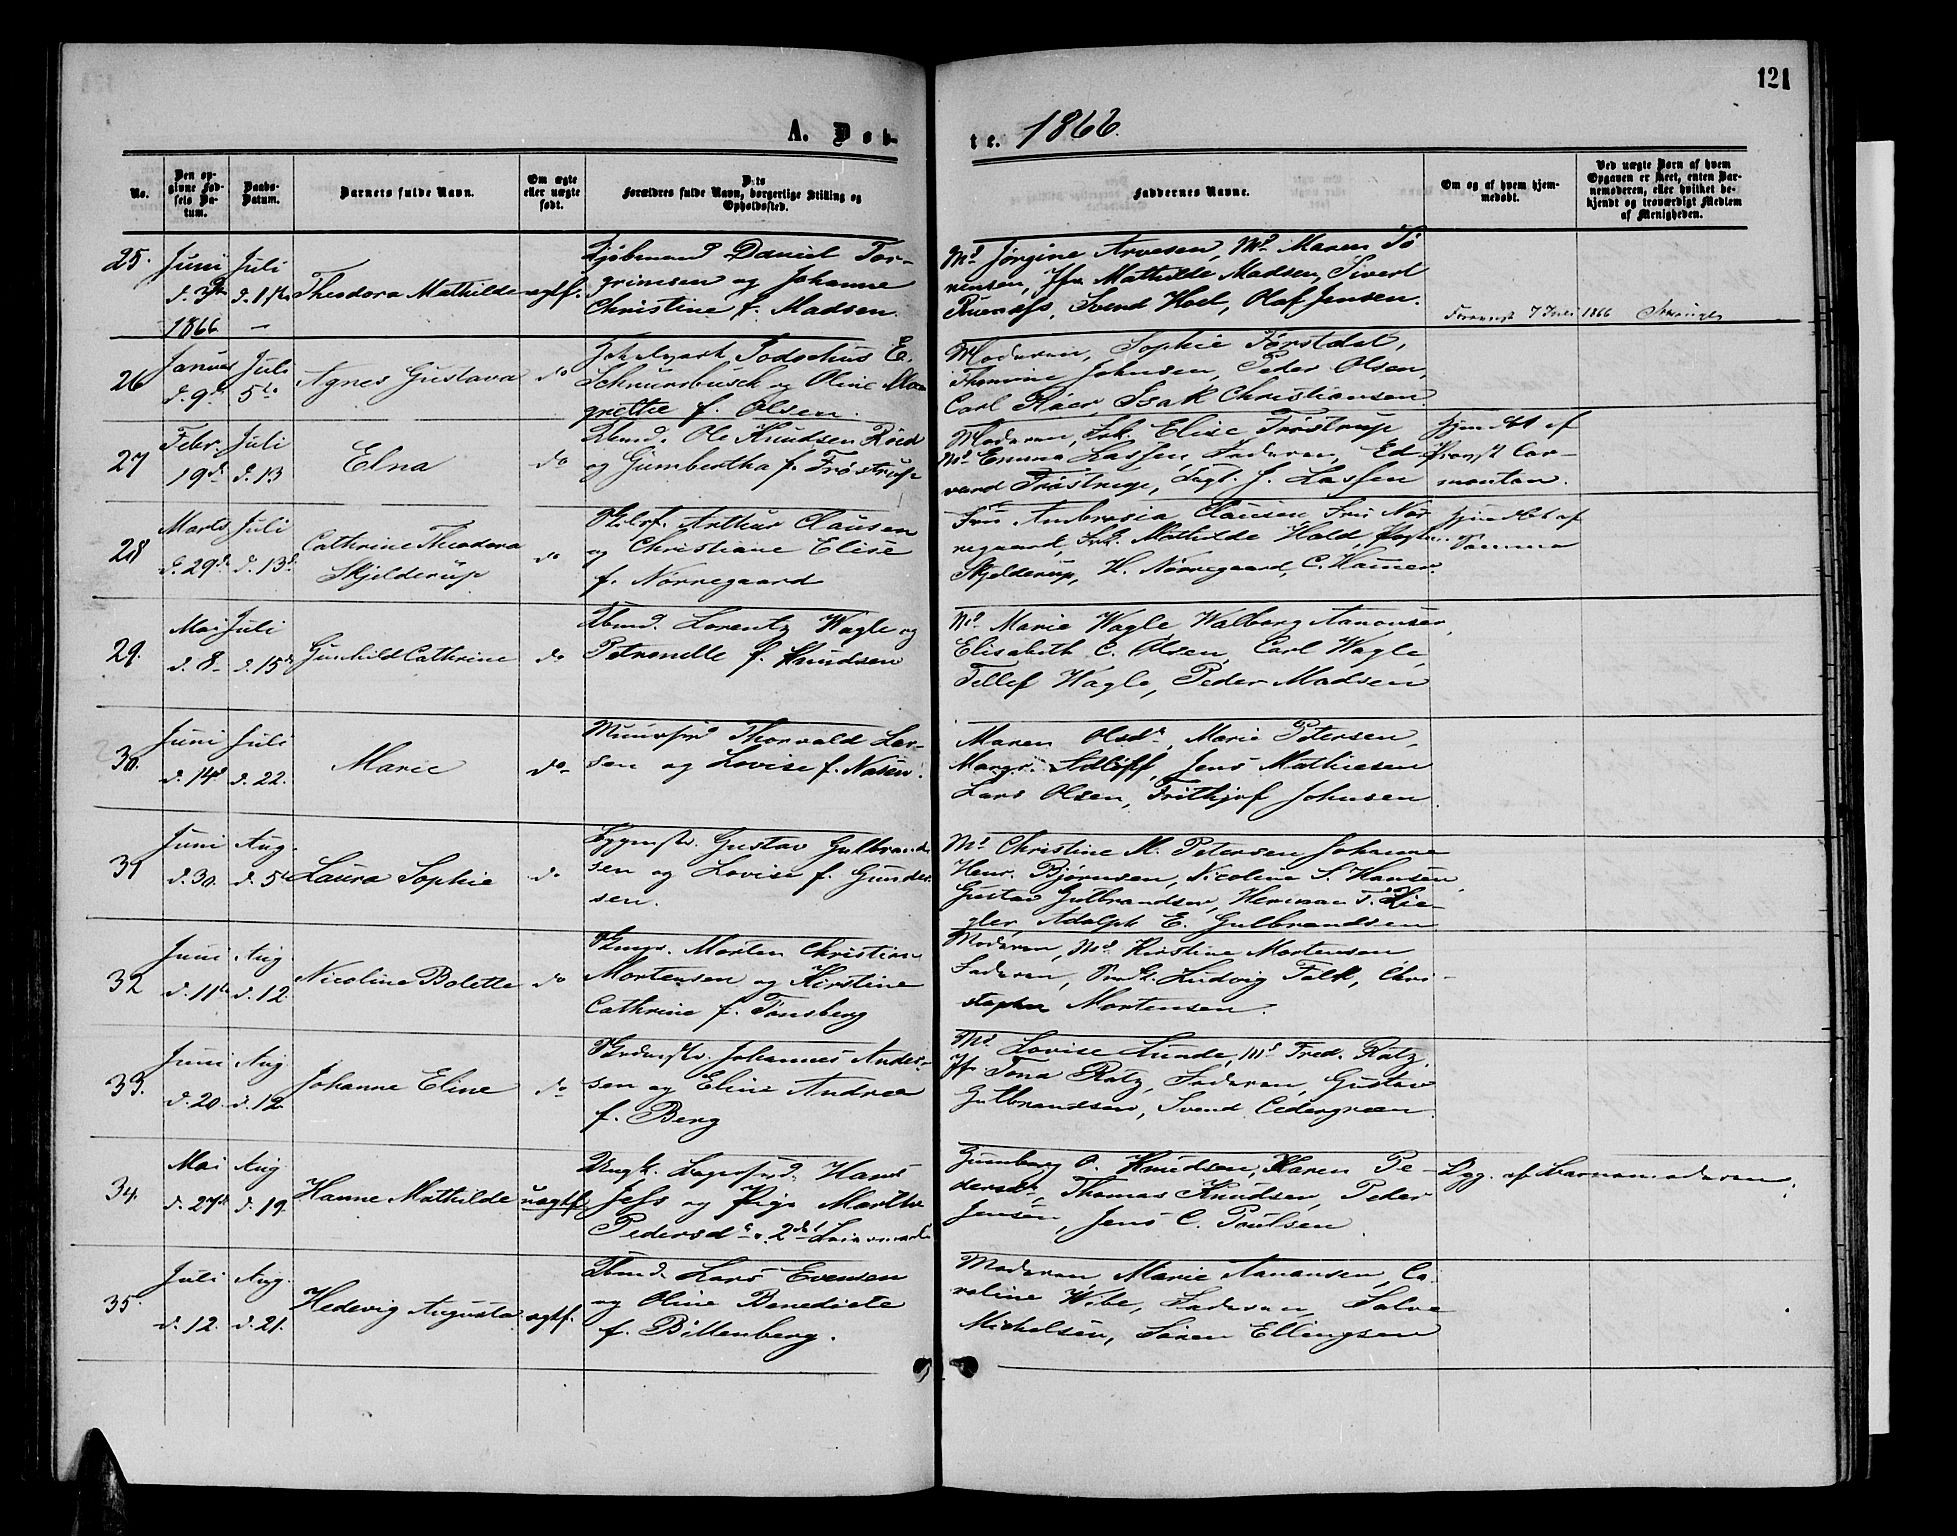 121
A. Døb-
te. 1866.
No.
Den op-
givne Fød-
sels Da-
tum.
Daabs-
Datum.
Barnets fulde Navn.
Om ægte
eller uægte
født.
Dets
Forældres fulde Navn, borgerlige Stilling og
Opholdssted.
Faddernes Navne.
Om og af hvem hjem-
medøbt.
Ved uægte Børn af hvem
Opgaven er skeet, enten Bar-
nemoderen, eller hvilket be-
kjendt og troværdigt Medlem
af Menigheden.
25.
Juni
1866
Juli
d. 1
Theodora Mathilde
egtf.
Daniel Tor-
grimsen og Johanne
Christine f. Madsen.
Md Jørgine Arvesen, Md Maren Tø
nnesen, Jfr Mathilde Madsen, Sivert
Svend Hoel, Olaf Jensen.
7 Juli 1866
26
Januar
d. 9d
Juli
5te
Agnes Gustava
do
Schnurrbusch og Oline Mar
grethe f. Olsen.
Moderen, Sophie
Thomine Johnsen, Peder Olsen,
Carl Röer, Isak Christiansen
27
Febr.
19d
Juli
d. 13
Elna
do
Ole Knudsen Röed
og Gumbertha f. Tröstrup
Moderen, Frk. Elise Tröstrup
Md Emma Lassen Faderen, Ed-
vard Tröstrup, J. Lassen
Hjemdøbt af
Provst Cor-
montan.
28
Marts
d. 29d
Juli
d. 13d
Cathrine Theodora
Skjelderup
do
Arthur Clausen
og Christiane Elise
f. Nørregaard
Fru Ambrosia Clausen Fru Nør
regaard, Frk. Mathilde Hold,
Skjelderup, H. Nørregaard, C. Hammer
Hjemdøbt af
Samme
29.
Mai
d. 8
Juli
d. 15d
Gunhild Cathrine
do
Lorentz Wagle og
Petronelle f. Knudsen
Md Marie Wagle Walborg Aanonsen,
Elisabeth C. Olsen, Carl Wagle,
Tellef Wagle, Peder Madsen
30.
Juni
d. 14d
Juli
d. 22.
Marie
do
Thorvald Lar-
sen og Lovise f.
Maren Olsdr, Marie Petersen,
Margr. Adlöff, Jens Mathiesen
Lars Olsen, Frithjof Johnsen.
31
Juni
d. 30.
Aug.
d. 5
Laura Sophie
do
Gustav Gulbrand
sen og Lovise f. Gunder
sen.
Md Christine M. Petersen Johanne
Henr. Bjørnsen, Nicoline S. Hansen,
Gustav Gulbrandsen, Herman T. Zie-
gler, Adolph E. Gulbrandsen
32
Juni
d. 11te
Aug
d. 12.
Nicoline Bolette
do
Morten Christian
Mortensen og Kirstine
Cathrine f. Tønsberg
Moderen, Md Kirstine Mortensen
Faderen, Ludvig Falk, Chri-
stopher Mortensen.
33.
Juni
d. 20.
Aug.
d. 12.
Johanne Eline
do
Johannes Ander-
sen og Eline Andrea
f. Berg
Md Lovise Lunde, Md Fred. Ratz,
Jfr Tona Ratz, Faderen, Gustav
Gulbrandsen, Svend Cedergreen.
34.
Mai
d. 27d
Aug
d. 19.
Hanne Mathilde
uegtf.
Ungk. Hans
Jess og Pige Marthe
Pedersdr. 2det Leiermaal
Gumborg O. Knudsen, Karen Pe-
dersdr, Thomas Knudsen, Peder
Jensen, Jens C. Poulsen.
Opg. af Barnemoderen.
35.
Juli
d. 12.
Aug.
d. 21.
Hedevig Augusta
egtf.
Lars Evensen
og Oline Benedicte
f. Billenberg.
Moderen, Marie Aanonsen, Ca-
roline Wibe, Faderen, Salve
Michelsen, Søren Ellingsen